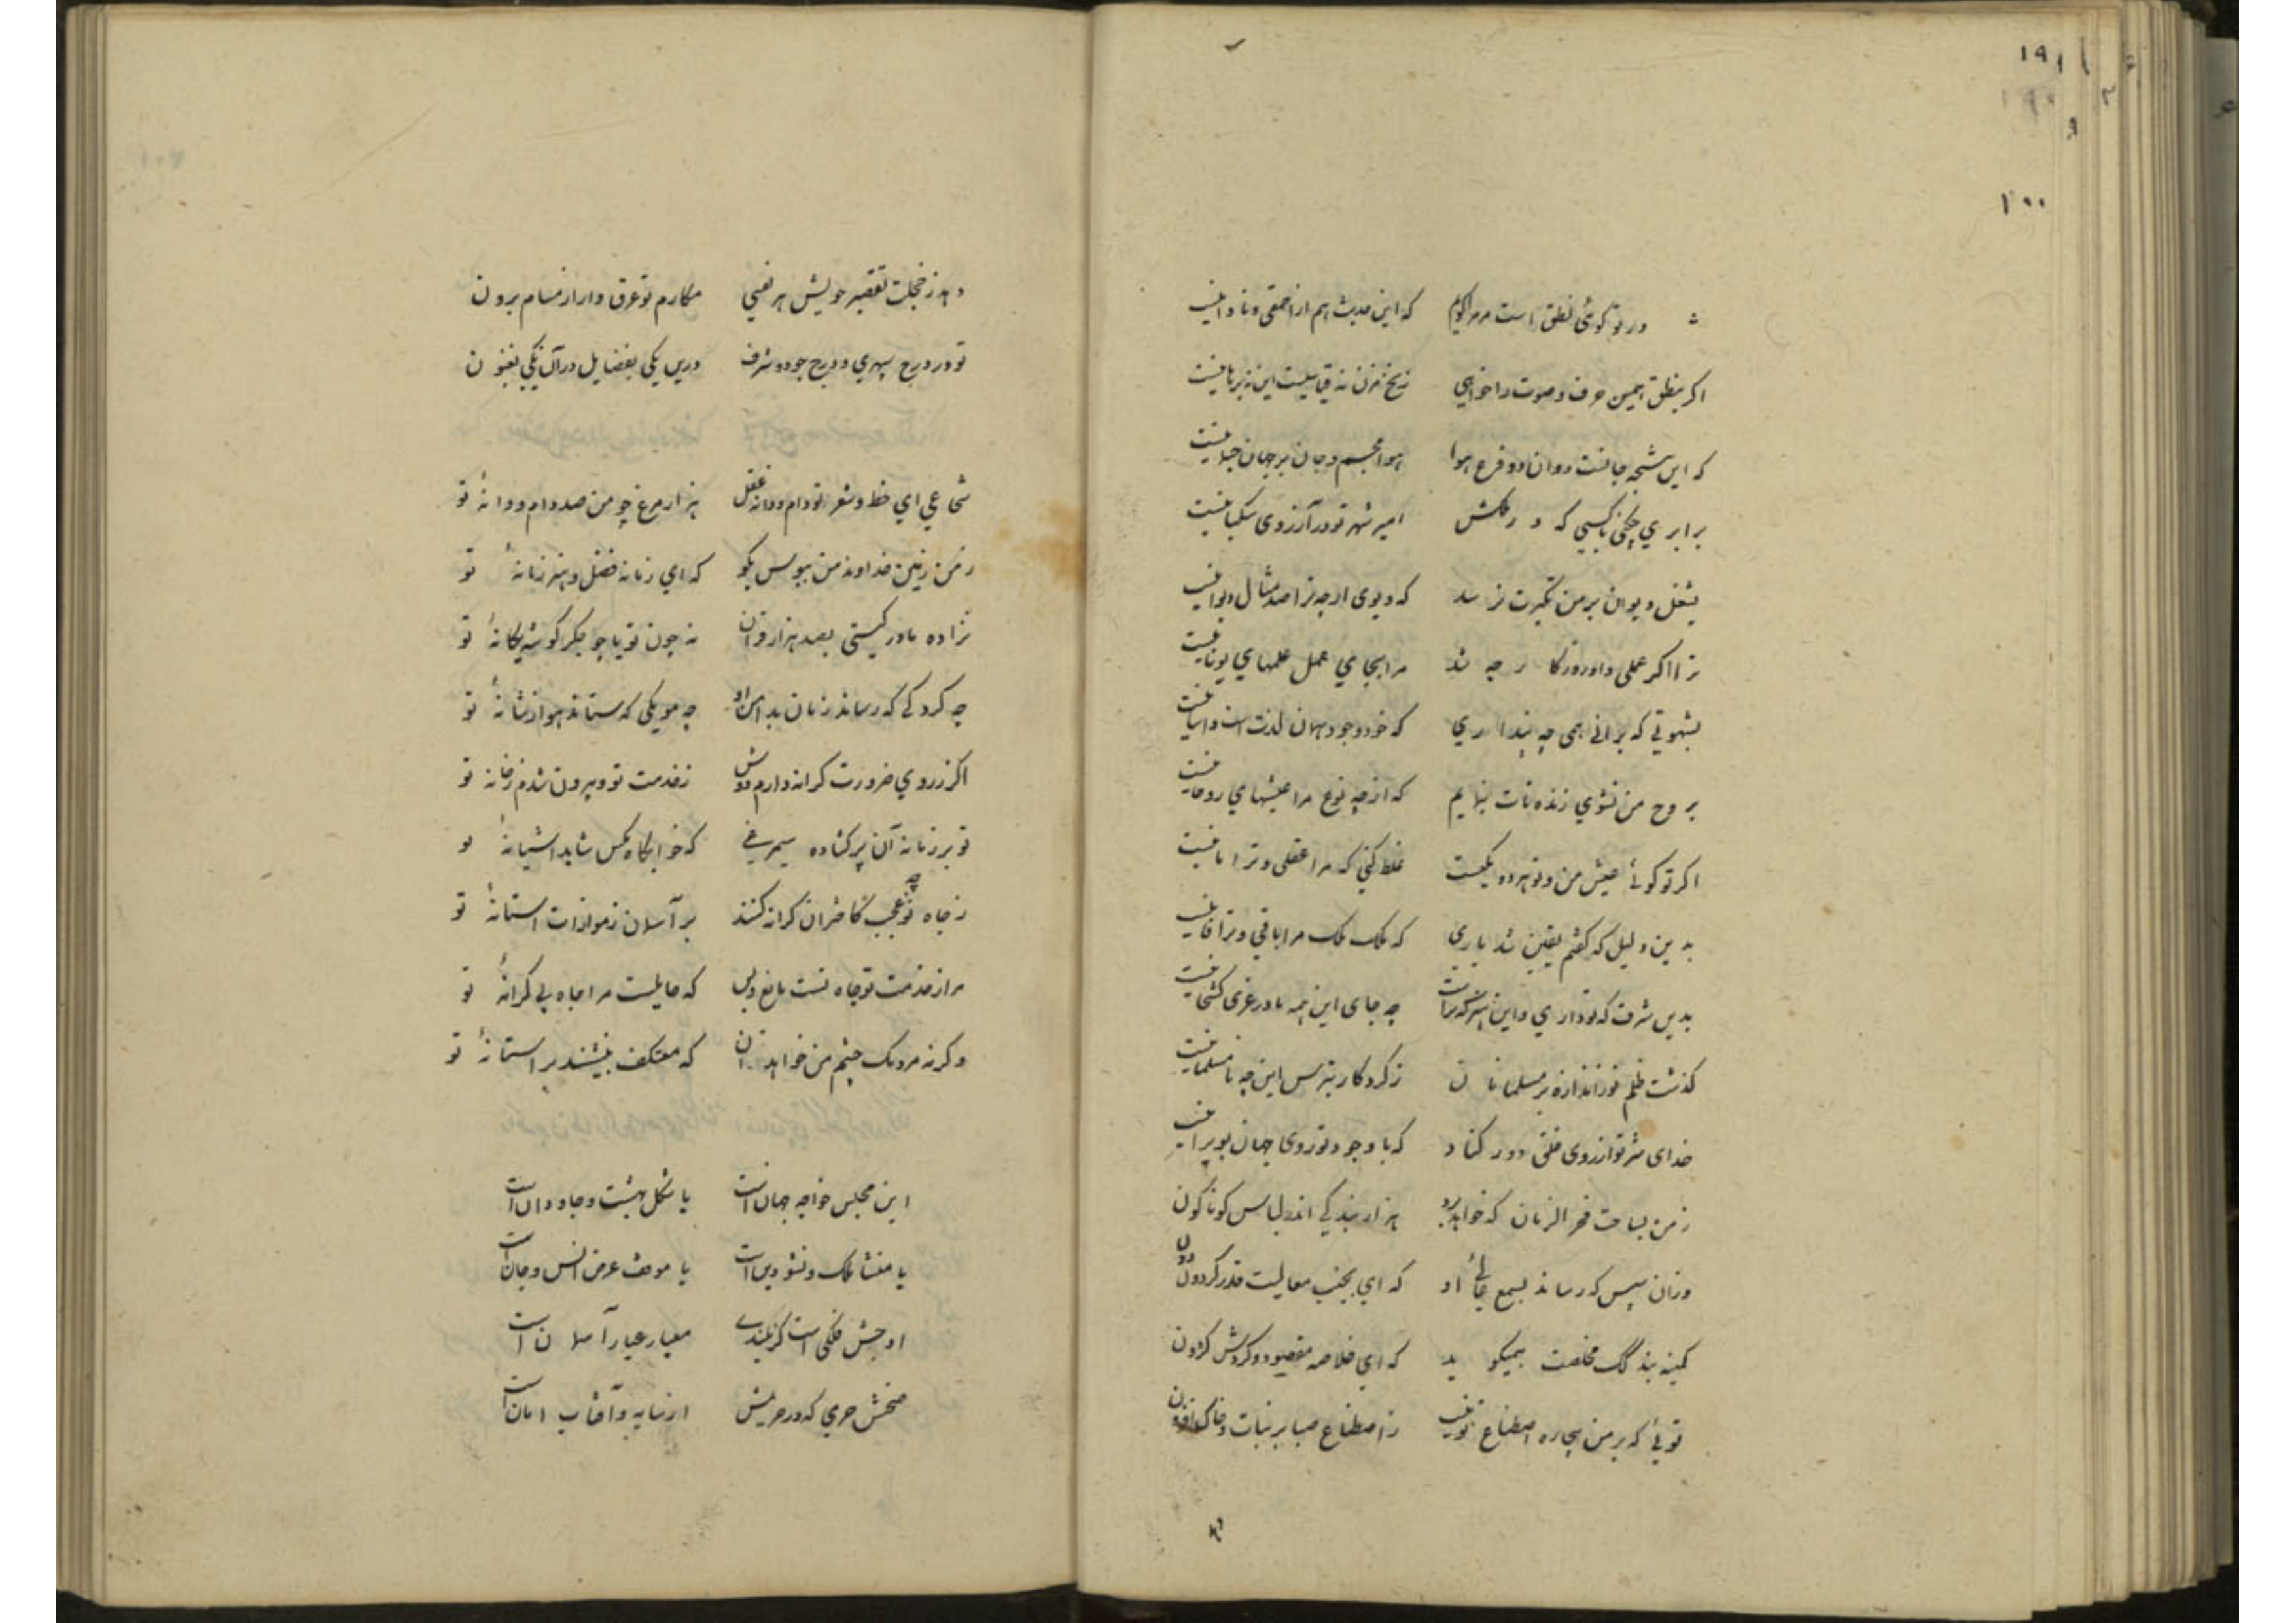 ۱۹۱
۱۰۰
ور تو گوئی نطق است مر مرا گویم که این حدیث هم از احمقی و نادانیست
اگر بنطق همین حرف و صوت را خواهی زنخ مزن نه قیاسیست این نه برهانیست
که این نتیجه جانست و ان دو فرع هوا هوا مجسم و جان بر جهان
برابری چکنی با کسی که در ملکش امیر شهر تو در آرزوی سکبانیست
بشغل دیوان بر من تکبرت نرسد که دیوی ار چه ترا صد مثال دیوانیست
ترا اگر عملی داد روزگار چه شد مرا بجای عمل علمهای یونانیست
بشهوتی که برانی همی چه پنداری که خود وجود جهان لذت است و
بروح من نشوی زنده تات بنمایم که از چه نوع مرا عیشهای روحانیست
اگر تو گوئی عیش من و تو هر دو یکیست غلط کنی که مرا عقلی و ترا نانیست
بدین دلیل که گفتم یقین شد باری که ملک ملک مرا باقی و ترا فانیست
بدین شرف که تو داری و این که تراست چه جای این همه مادر غری کشخانیست
گذشت ظلم تو ز اندازه بر مسلمانان ز کردگار بترس این چه نامسلمانیست
خدای شر تو از روی خلق دور کناد که با وجود تو روی جهان بویرانیست
ز من بساحت فخر الزمان که خواهد برد هزار بندگی اندر لباس گوناگون
وزان سپس که رساند بسمع او که ای بجنب معالیت قدر گردون دون
کمینه بندگک مخلصت همیگوید که ای خلاصه مقصود و گردش گردون
توئی که بر من بیچاره اصطناع تو نیست ز اصطناع صبا بر نبات و خاک افزون
دهد ز خجلت تقصیر خویش هر نفسی مکارم تو عرق وار از مسام برون
تو در درج سپهری و درج جود و شرف درین یکی بفضایل در آن یکی بفنون
شجاعی ای خط و شعر تو دام و دانه عقل هزار مرغ چو من صید دام و دانهٔ تو
ز من زمین خداوند من ببوس بگو که ای زمانه فضل و هنر زمانهٔ تو
نزاده مادر گیتی بصد هزار قران نه چون تو یا چو جگر گوشه یگانهٔ تو
چه گرد کی که رساند زمان بدامن او چه مویکی که ستاند هوا ز شانهٔ تو
اگر ز روی ضرورت کرانه دارم دوش ز خدمت تو و بیرون شدم ز خانه تو
تو بر زمانه آن پر گشاده سیمرغی که خوابگاه مگس شاید آشیانهٔ تو
ز جاه تو چه عجب کاختران کرانه کنند بر آسمان ز موازات آستانهٔ تو
مرا ز خدمت تو جاه تست مانع و بس که حایلست مرا جاه بی کرانهٔ تو
وگرنه مردمک چشم من خواهد آن که معتکف بنشیند بر آستانهٔ تو
این مجلس خواجه جهان است یا شکل بهشت جاودان است
یا منشأ ملک و نشو دین است یا موقف عرض انس و جان است
اوجش فلکی است کز بلندی معیار عیار آسمان است
صحنش حرمی که در حریمش از سایه و آفتاب امان است